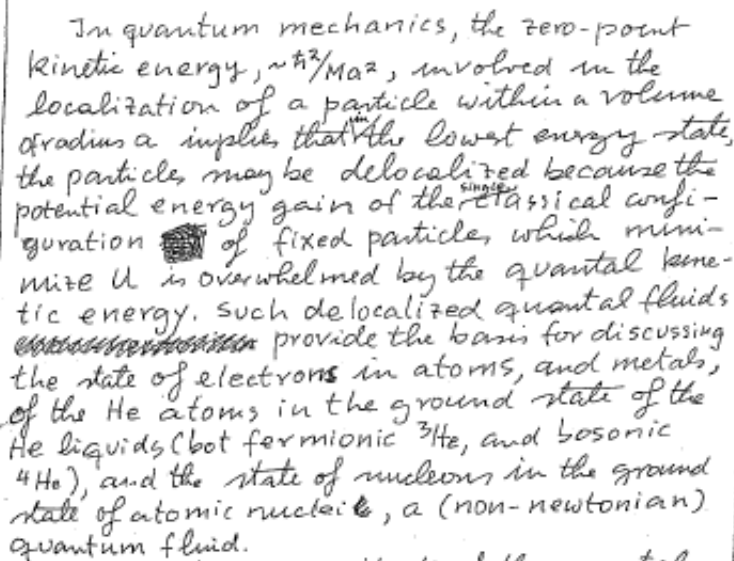 In quantum mechanics, the zero-point
kinetic energy, ~ħ²/Ma², involved in the
localization of a particle within a volume
of radius a implies that in the lowest energy state,
the particles may be delocalized because the
potential energy gain of the single classical confi-
guration of fixed particles which mini-
mize U is overwhelmed by the quantal kine-
tic energy. Such delocalized quantal fluids
provide the basis for discussing
the state of electrons in atoms, and metals,
of the He atoms in the ground state of the
He liquids (bot fermionic ³He, and bosonic
⁴He), and the state of nucleons in the ground
state of atomic nuclei, a (non-newtonian)
quantum fluid.